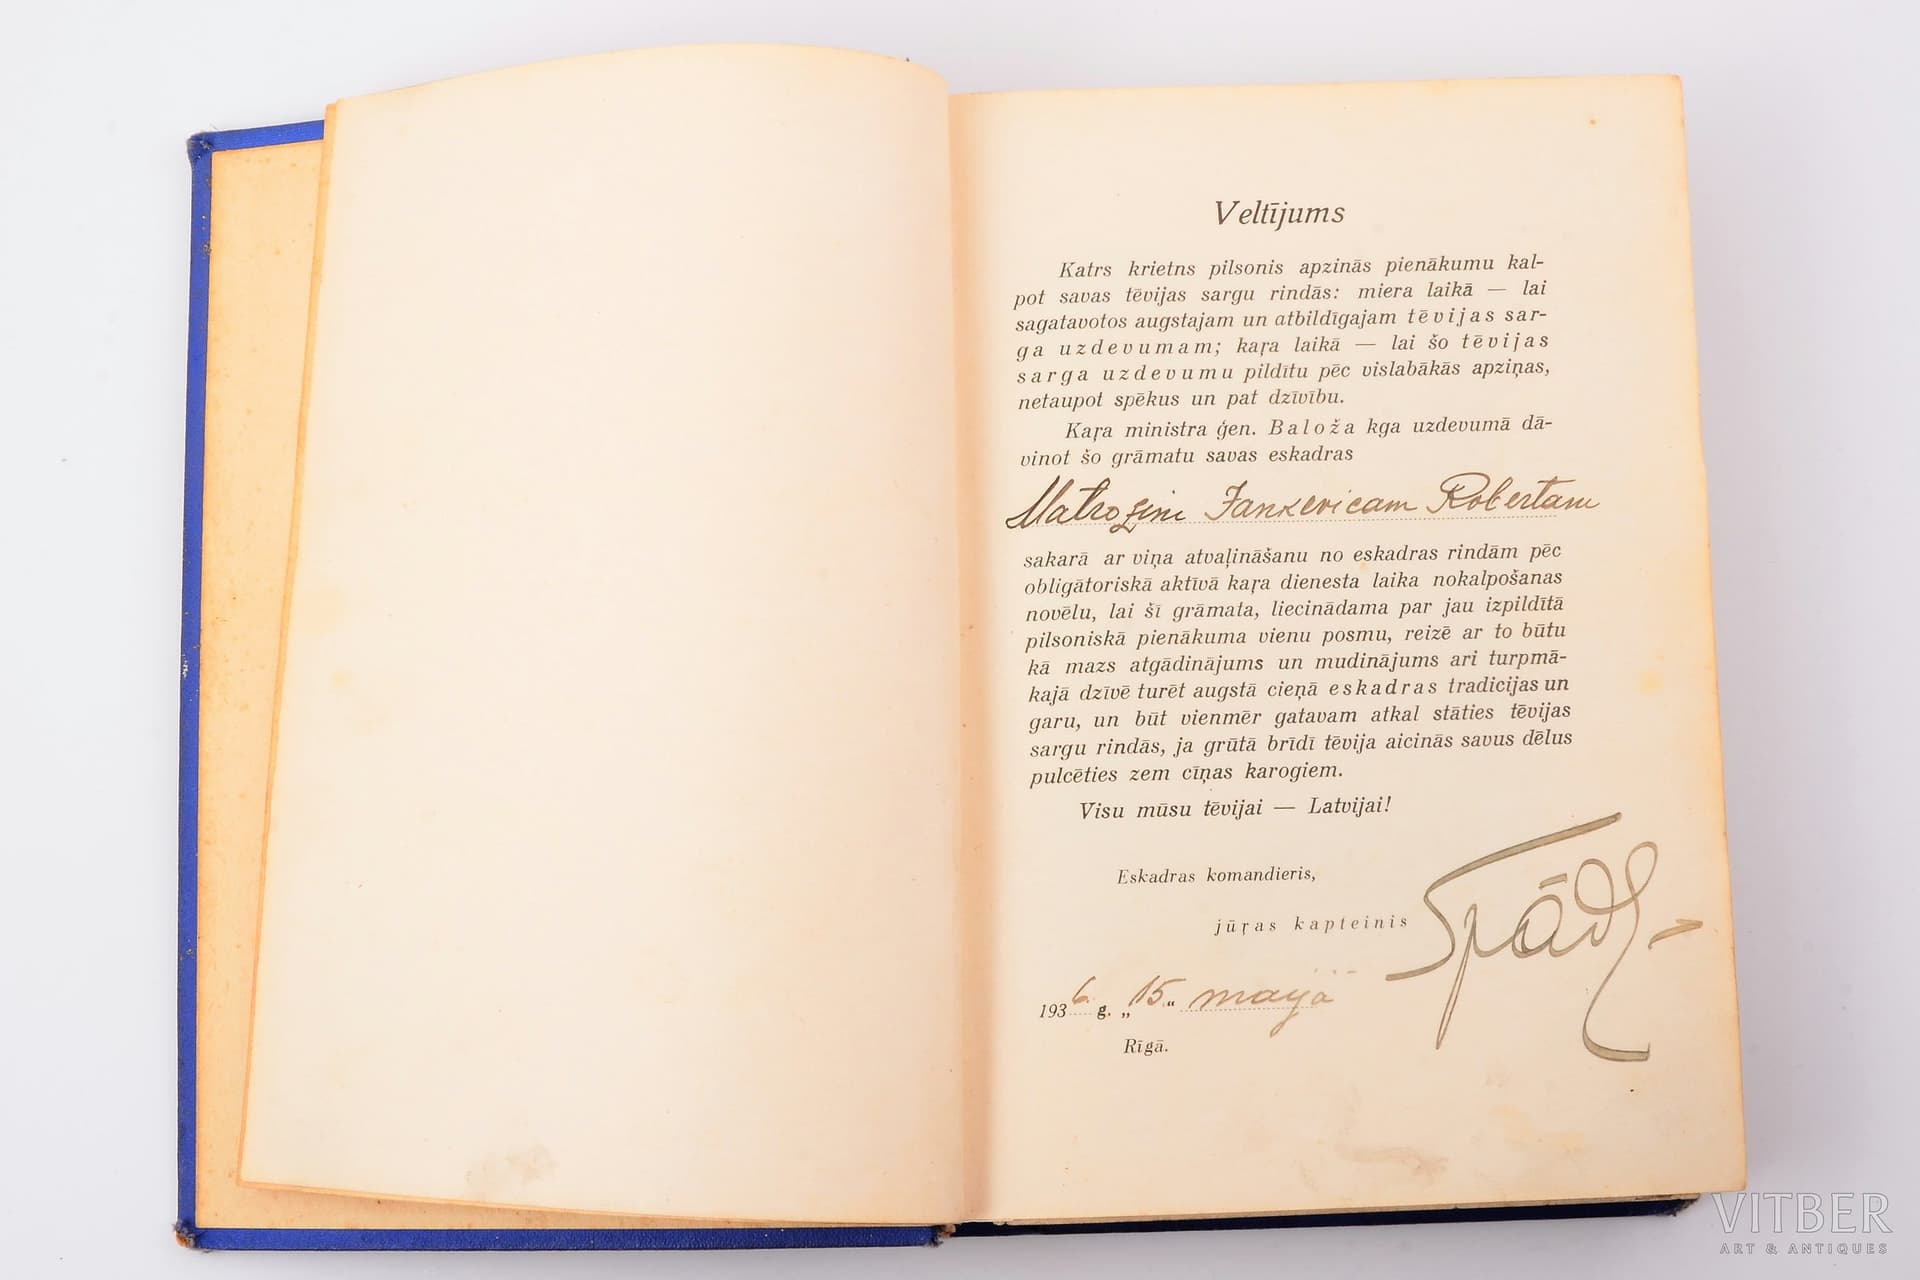 Veltījums
Katrs krietns pilsonis apzinās pienākumu kal-
pot savas tēvijas sargu rindās: miera laikā — lai
sagatavotos augstajam un atbildīgajam tēvijas sar-
ga uzdevumam; kaŗa laikā — lai šo tēvijas
sarga uzdevumu pildītu pēc vislabākās apziņas,
netaupot spēkus un pat dzīvību.
Kaŗa ministra ģen. Baloža kga uzdevumā dā-
vinot šo grāmatu savas eskadras
Matrozim Jankevicam Robertam
sakarā ar viņa atvaļināšanu no eskadras rindām pēc
obligātoriskā aktīvā kaŗa dienesta laika nokalpošanas
novēlu, lai šī grāmata, liecinādama par jau izpildītā
pilsoniskā pienākuma vienu posmu, reizē ar to būtu
kā mazs atgādinājums un mudinājums ari turpmā-
kajā dzīvē turēt augstā cieņā eskadras tradicijas un
garu, un būt vienmēr gatavam atkal stāties tēvijas
sargu rindās, ja grūtā brīdī tēvija aicinās savus dēlus
pulcēties zem cīņas karogiem.
Visu mūsu tēvijai — Latvijai!
Eskadras komandieris,
jūŗas kapteinis Spāde
1936. g. „15.“ maijā
Rīgā.
VITBER
ART & ANTIQUES